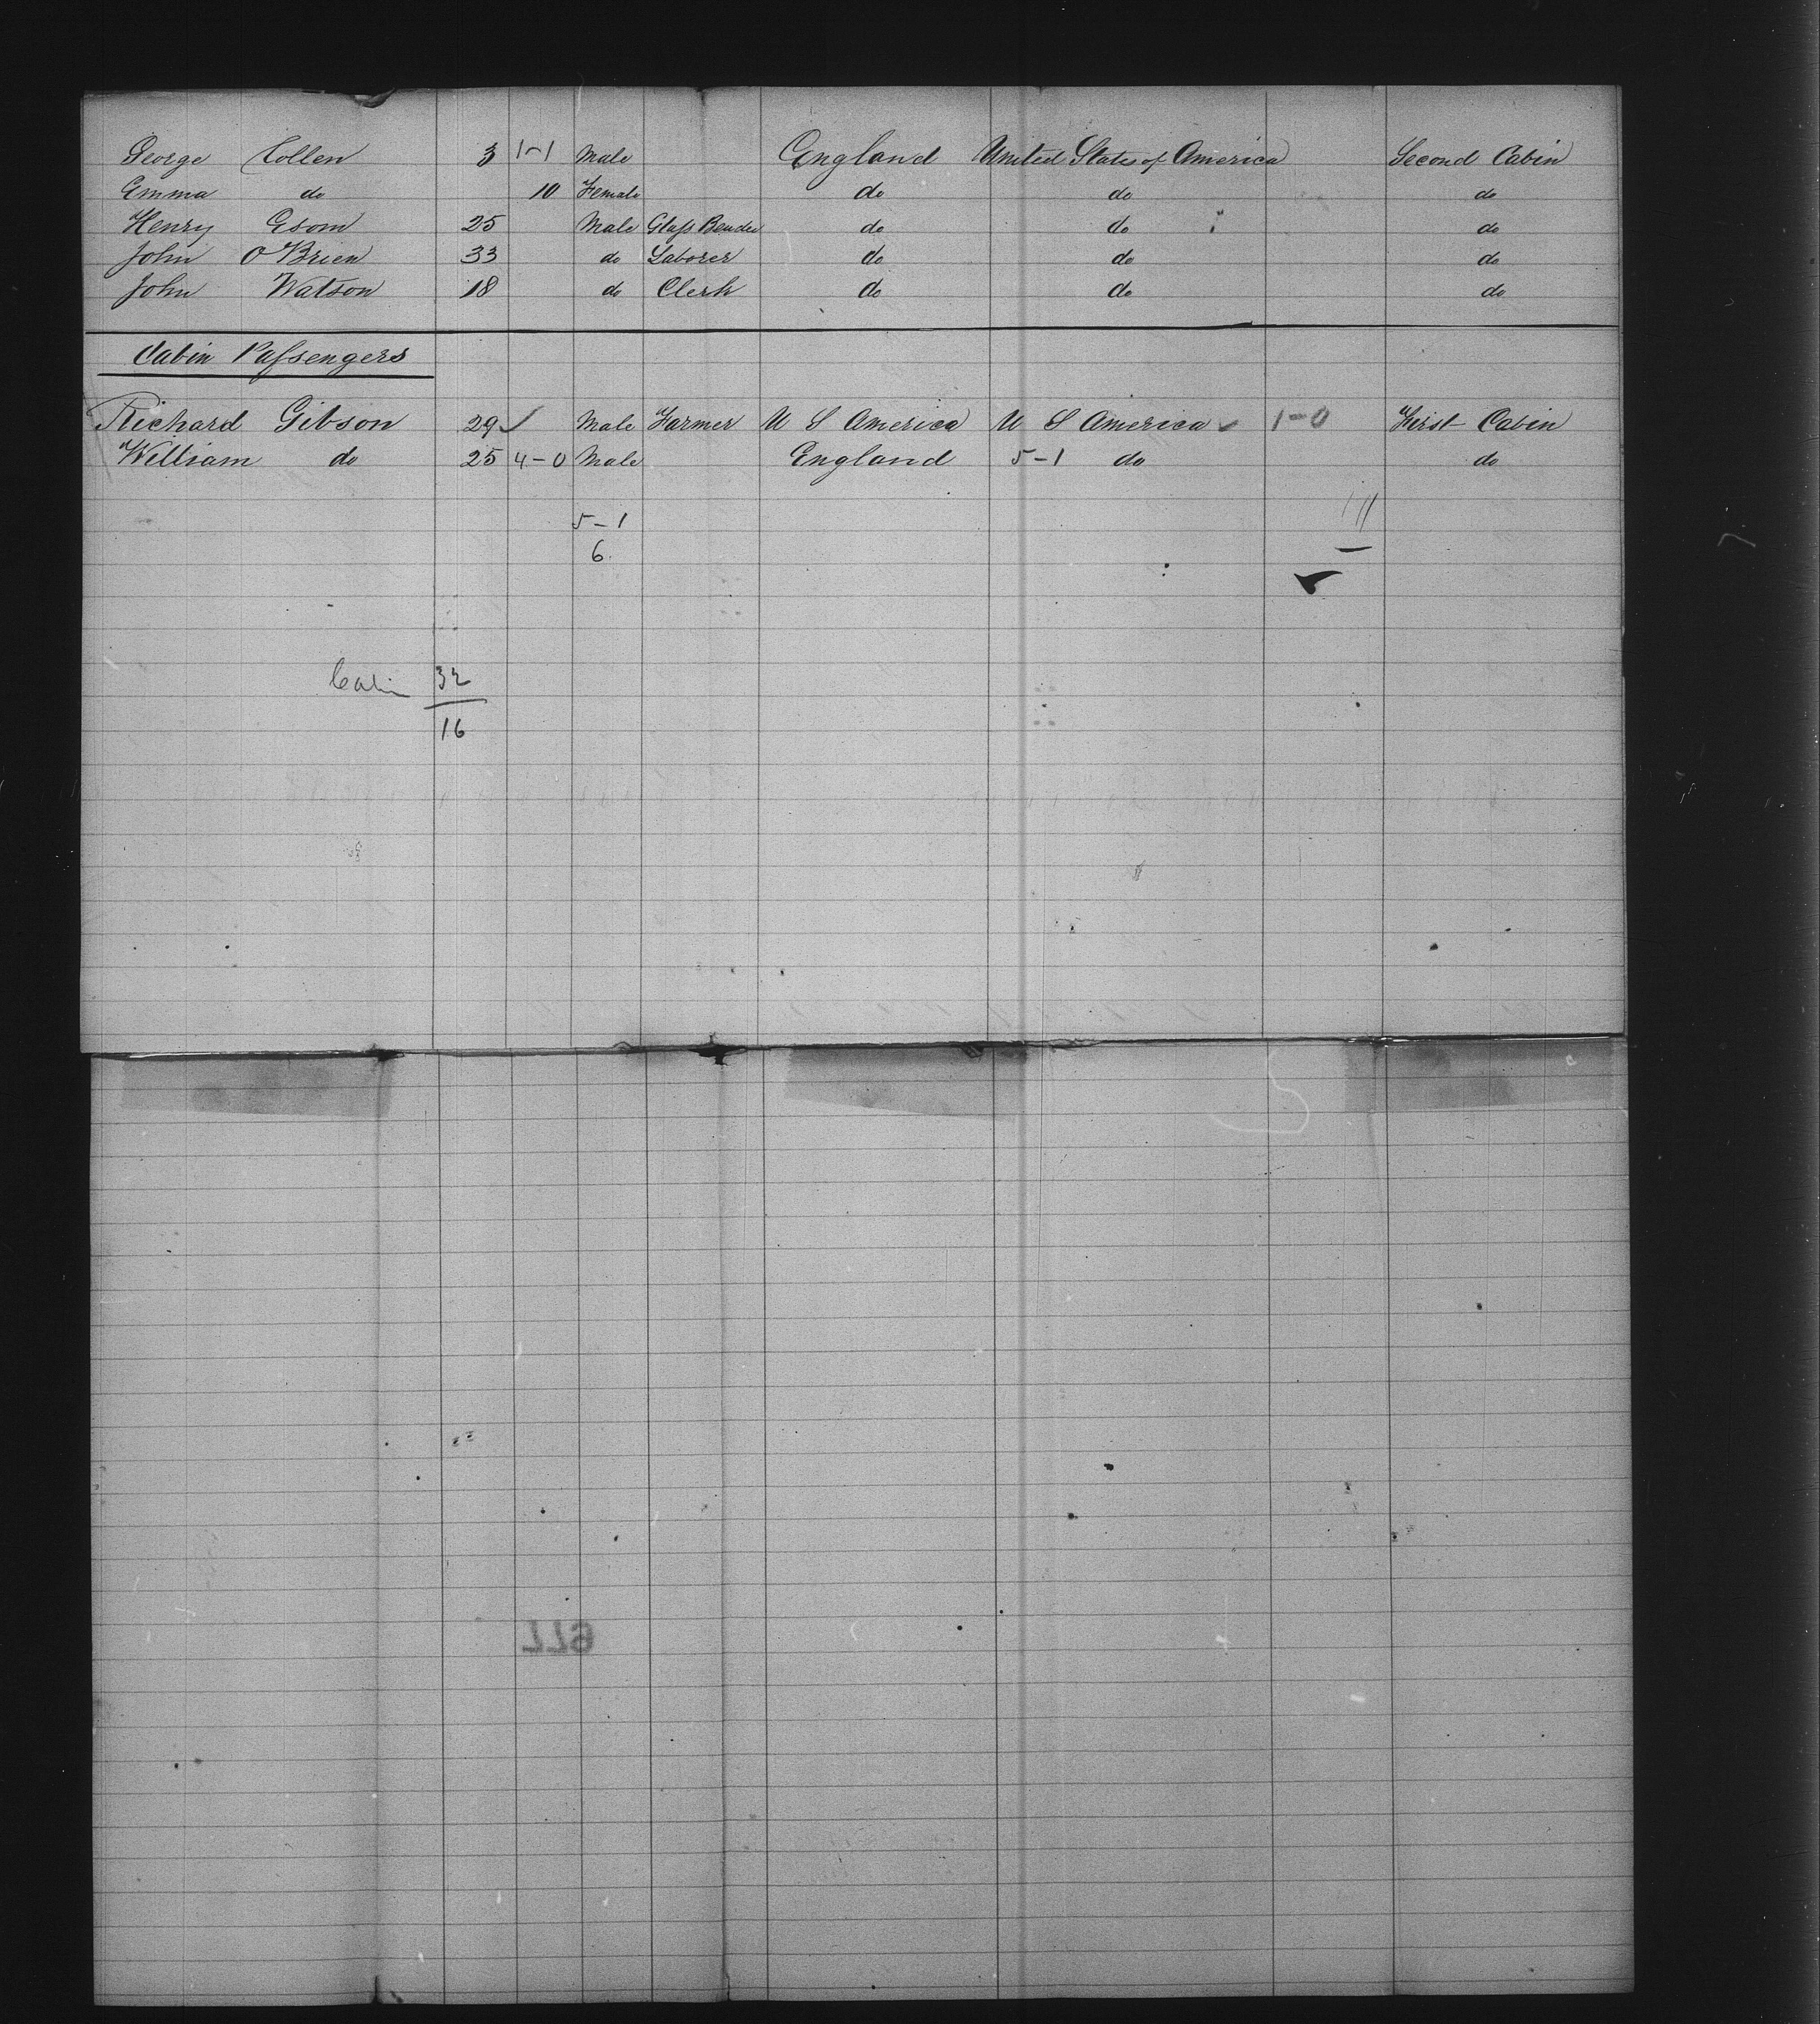 George Collen 3 1-1 Male England United States of America Second Cabin
Emma do 10 Female do do do
Henry Esom 25 Male Glass Bender do do do
John O'Brien 33 do Laborer do do do
John Watson 18 do Clerk do do do
Cabin Passengers
Richard Gibson 29 Male Farmer U S America U S America 1-0 First Cabin
William do 25 4-0 Male England 5-1 do do
5-1
6
Cabin 32
16
779